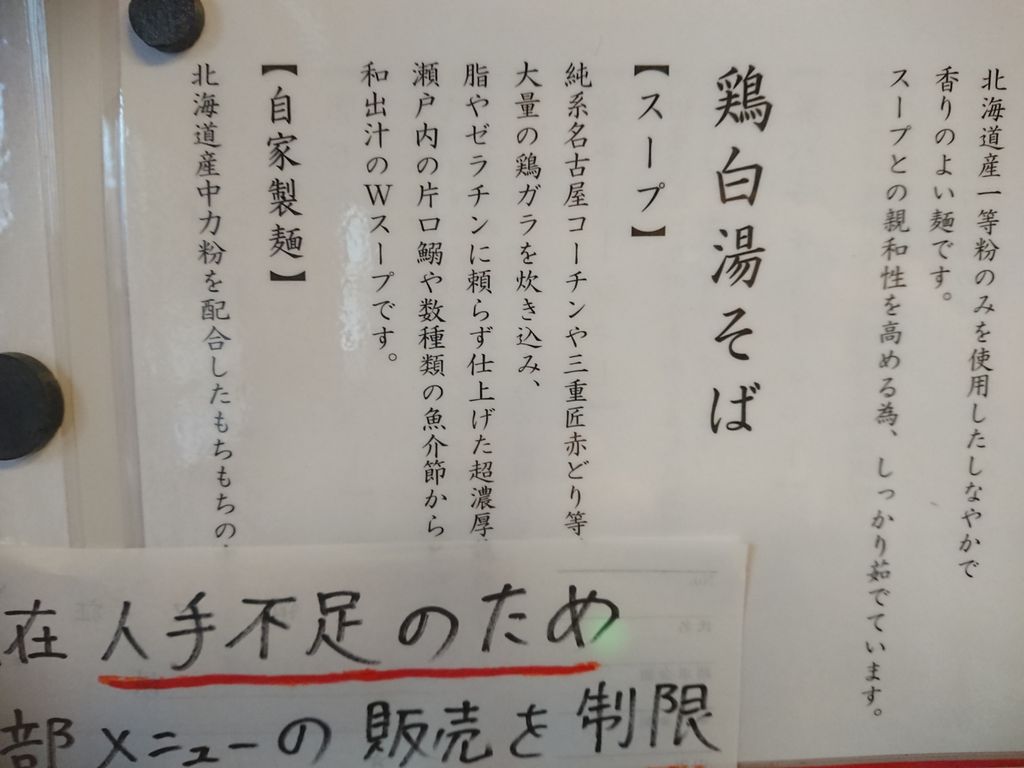 北海道産一等粉のみを使用したしなやかで
香りのよい麺です。
スープとの親和性を高める為、しっかり茹でています。
鶏白湯そば
【スープ】
純系名古屋コーチンや三重匠赤どり等
大量の鶏ガラを炊き込み、
脂やゼラチンに頼らず仕上げた超濃厚
瀬戸内の片口鰯や数種類の魚介節から
和出汁のWスープです。
【自家製麺】
北海道産中力粉を配合したもちもちの
在 人手不足のため
部メニューの販売を制限